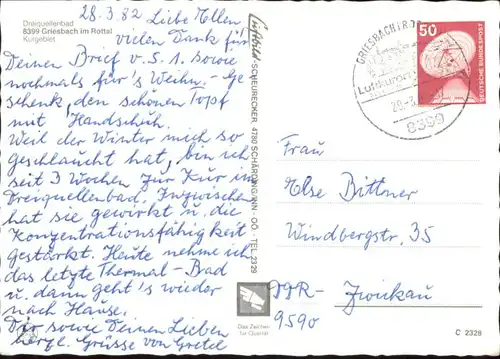 Dreiquellenbad
8399 Griesbach im Rottal
Kurgebiet
28.3.82 Liebe Ellen
vielen Dank für
Deinen Brief v. 5.1. sowie
nochmals für's Weihn.-Ge-
schenk, den schönen Topf
mit Handschuh.
Weil der Winter mich so
geschlaucht hat, bin ich
seit 3 Wochen zur Kur im
Dreiquellenbad. Inzwischen
hat sie gewirkt u. die
Konzentrationsfähigkeit
gestärkt. Heute nehme ich
das letzte Thermal-Bad
u. dann geht's wieder
nach Hause.
Dir sowie Deinen Lieben
herzl. Grüsse von Gretel
SCHEURECKER, 4780 SCHÄRDING/INN - OÖ - TEL. 2329
Das Zeichen
für Qualität
GRIESBACH i. R.
Luftkurort
8399
50
DEUTSCHE BUNDESPOST
Frau
Else Bittner
Windbergstr. 35
DDR- Zwickau
9590
C 2328